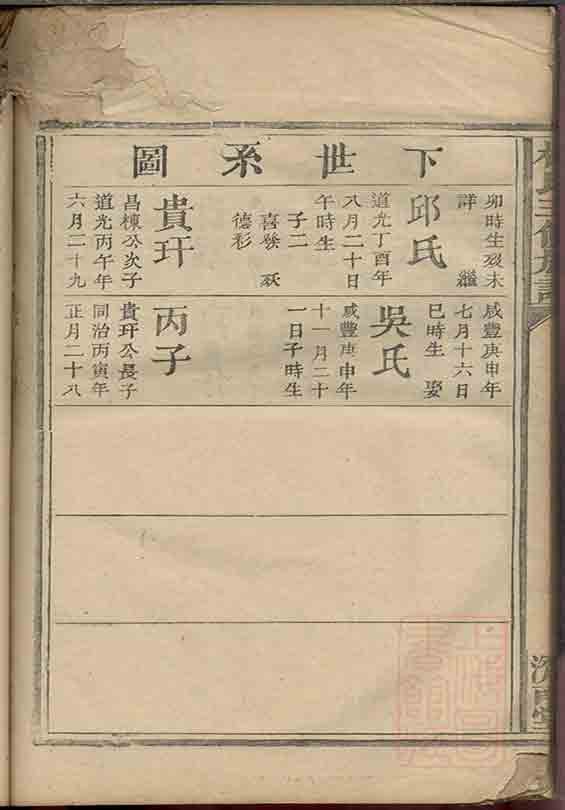 下世系圖
卯時生歿未
詳　繼
邱氏
道光丁酉年
八月二十日
午時生
子二
喜發　歿
德彩
貴玕
昌棟公次子
道光丙午年
六月二十九
咸豐庚申年
七月十六日
巳時生　娶
吳氏
咸豐庚申年
十一月二十
一日子時生
丙子
貴玕公長子
同治丙寅年
正月二十八